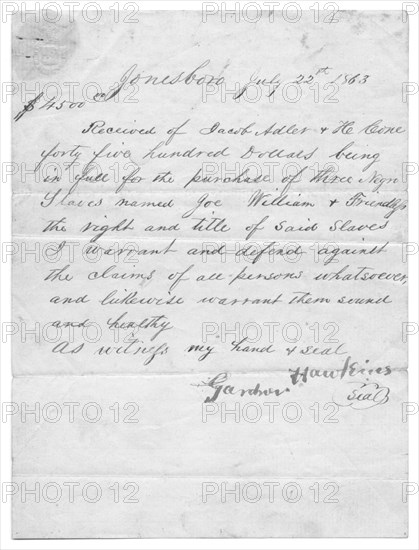 Jonesboro July 22st 1863
$4500 00
Received of Jacob Adler & H. Cone
forty five hundred Dollars being
in full for the purchase of three Negro
Slaves named Joe William & Friendly
the right and title of said Slaves
I warrant and defend against
the claims of all persons whatsoever,
and likewise warrant them sound
and healthy
As witness my hand & seal
Hawkins
Seal
PHOTO12